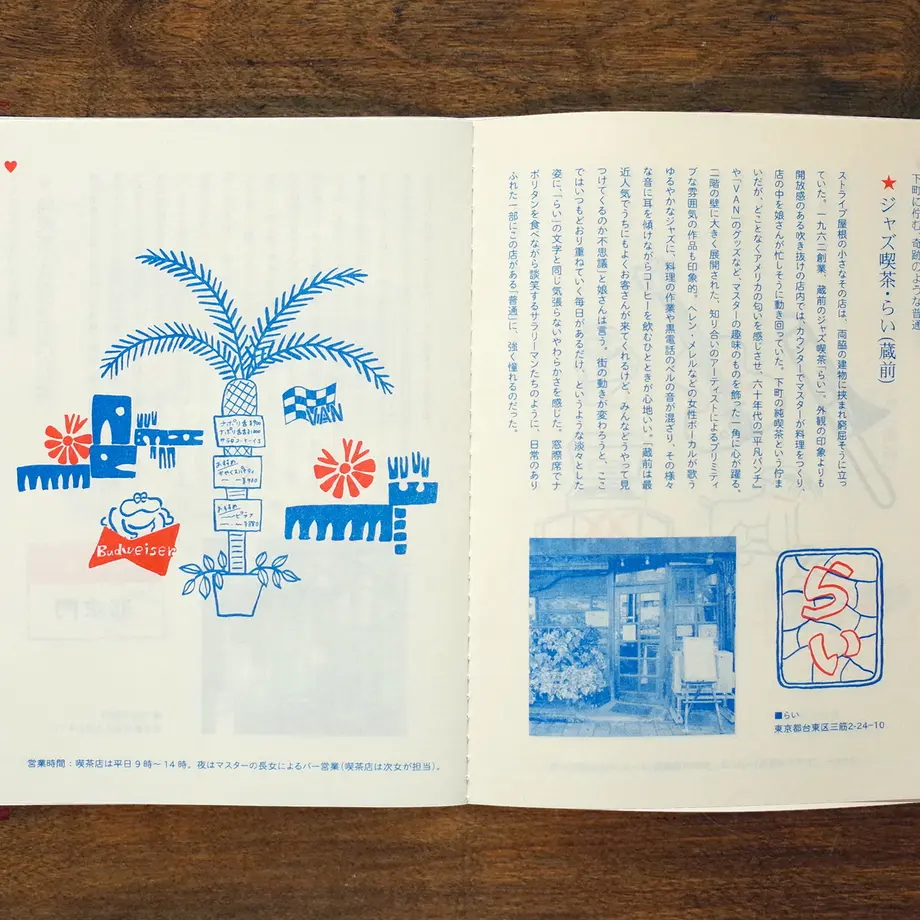 下町に佇む、奇跡のような普通
★ジャズ喫茶・らい(蔵前)
ストライプ屋根の小さなその店は、両脇の建物に挟まれ窮屈そうに立っ
ていた。一九六二創業、蔵前のジャズ喫茶「らい」。外観の印象よりも
開放感のある吹き抜けの店内では、カウンターでマスターが料理をつくり、
店の中を娘さんが忙しそうに動き回っていた。下町の純喫茶という佇ま
いだが、どことなくアメリカの匂いを感じさせ、六十年代の『平凡パンチ』
や「VAN」のグッズなど、マスターの趣味のものを飾った一角に心が躍る。
二階の壁に大きく展開された、知り合いのアーティストによるプリミティ
ブな雰囲気の作品も印象的。ヘレン・メレルなどの女性ボーカルが歌う
ゆるやかなジャズに、料理の作業や黒電話のベルの音が混ざり、その様々
な音に耳を傾けながらコーヒーを飲むひとときが心地いい。「蔵前は最
近人気でうちにもよくお客さんが来てくれるけど、みんなどうやって見
つけてくるのか不思議」と娘さんは言う。街の動きが変わろうと、ここ
ではいつもどおり重ねていく毎日があるだけ、というような淡々とした
姿に、「らい」の文字と同じ気張らないやわらかさを感じた。窓際席でナ
ポリタンを食べながら談笑するサラリーマンたちのように、日常のあり
ふれた一部にこの店がある「普通」に、強く憧れるのだった。
らい
■らい
東京都台東区三筋2-24-10
VAN
おすすめ
¥900
おすすめ
Budweiser
営業時間：喫茶店は平日9時〜14時。夜はマスターの長女によるバー営業(喫茶店は次女が担当)。